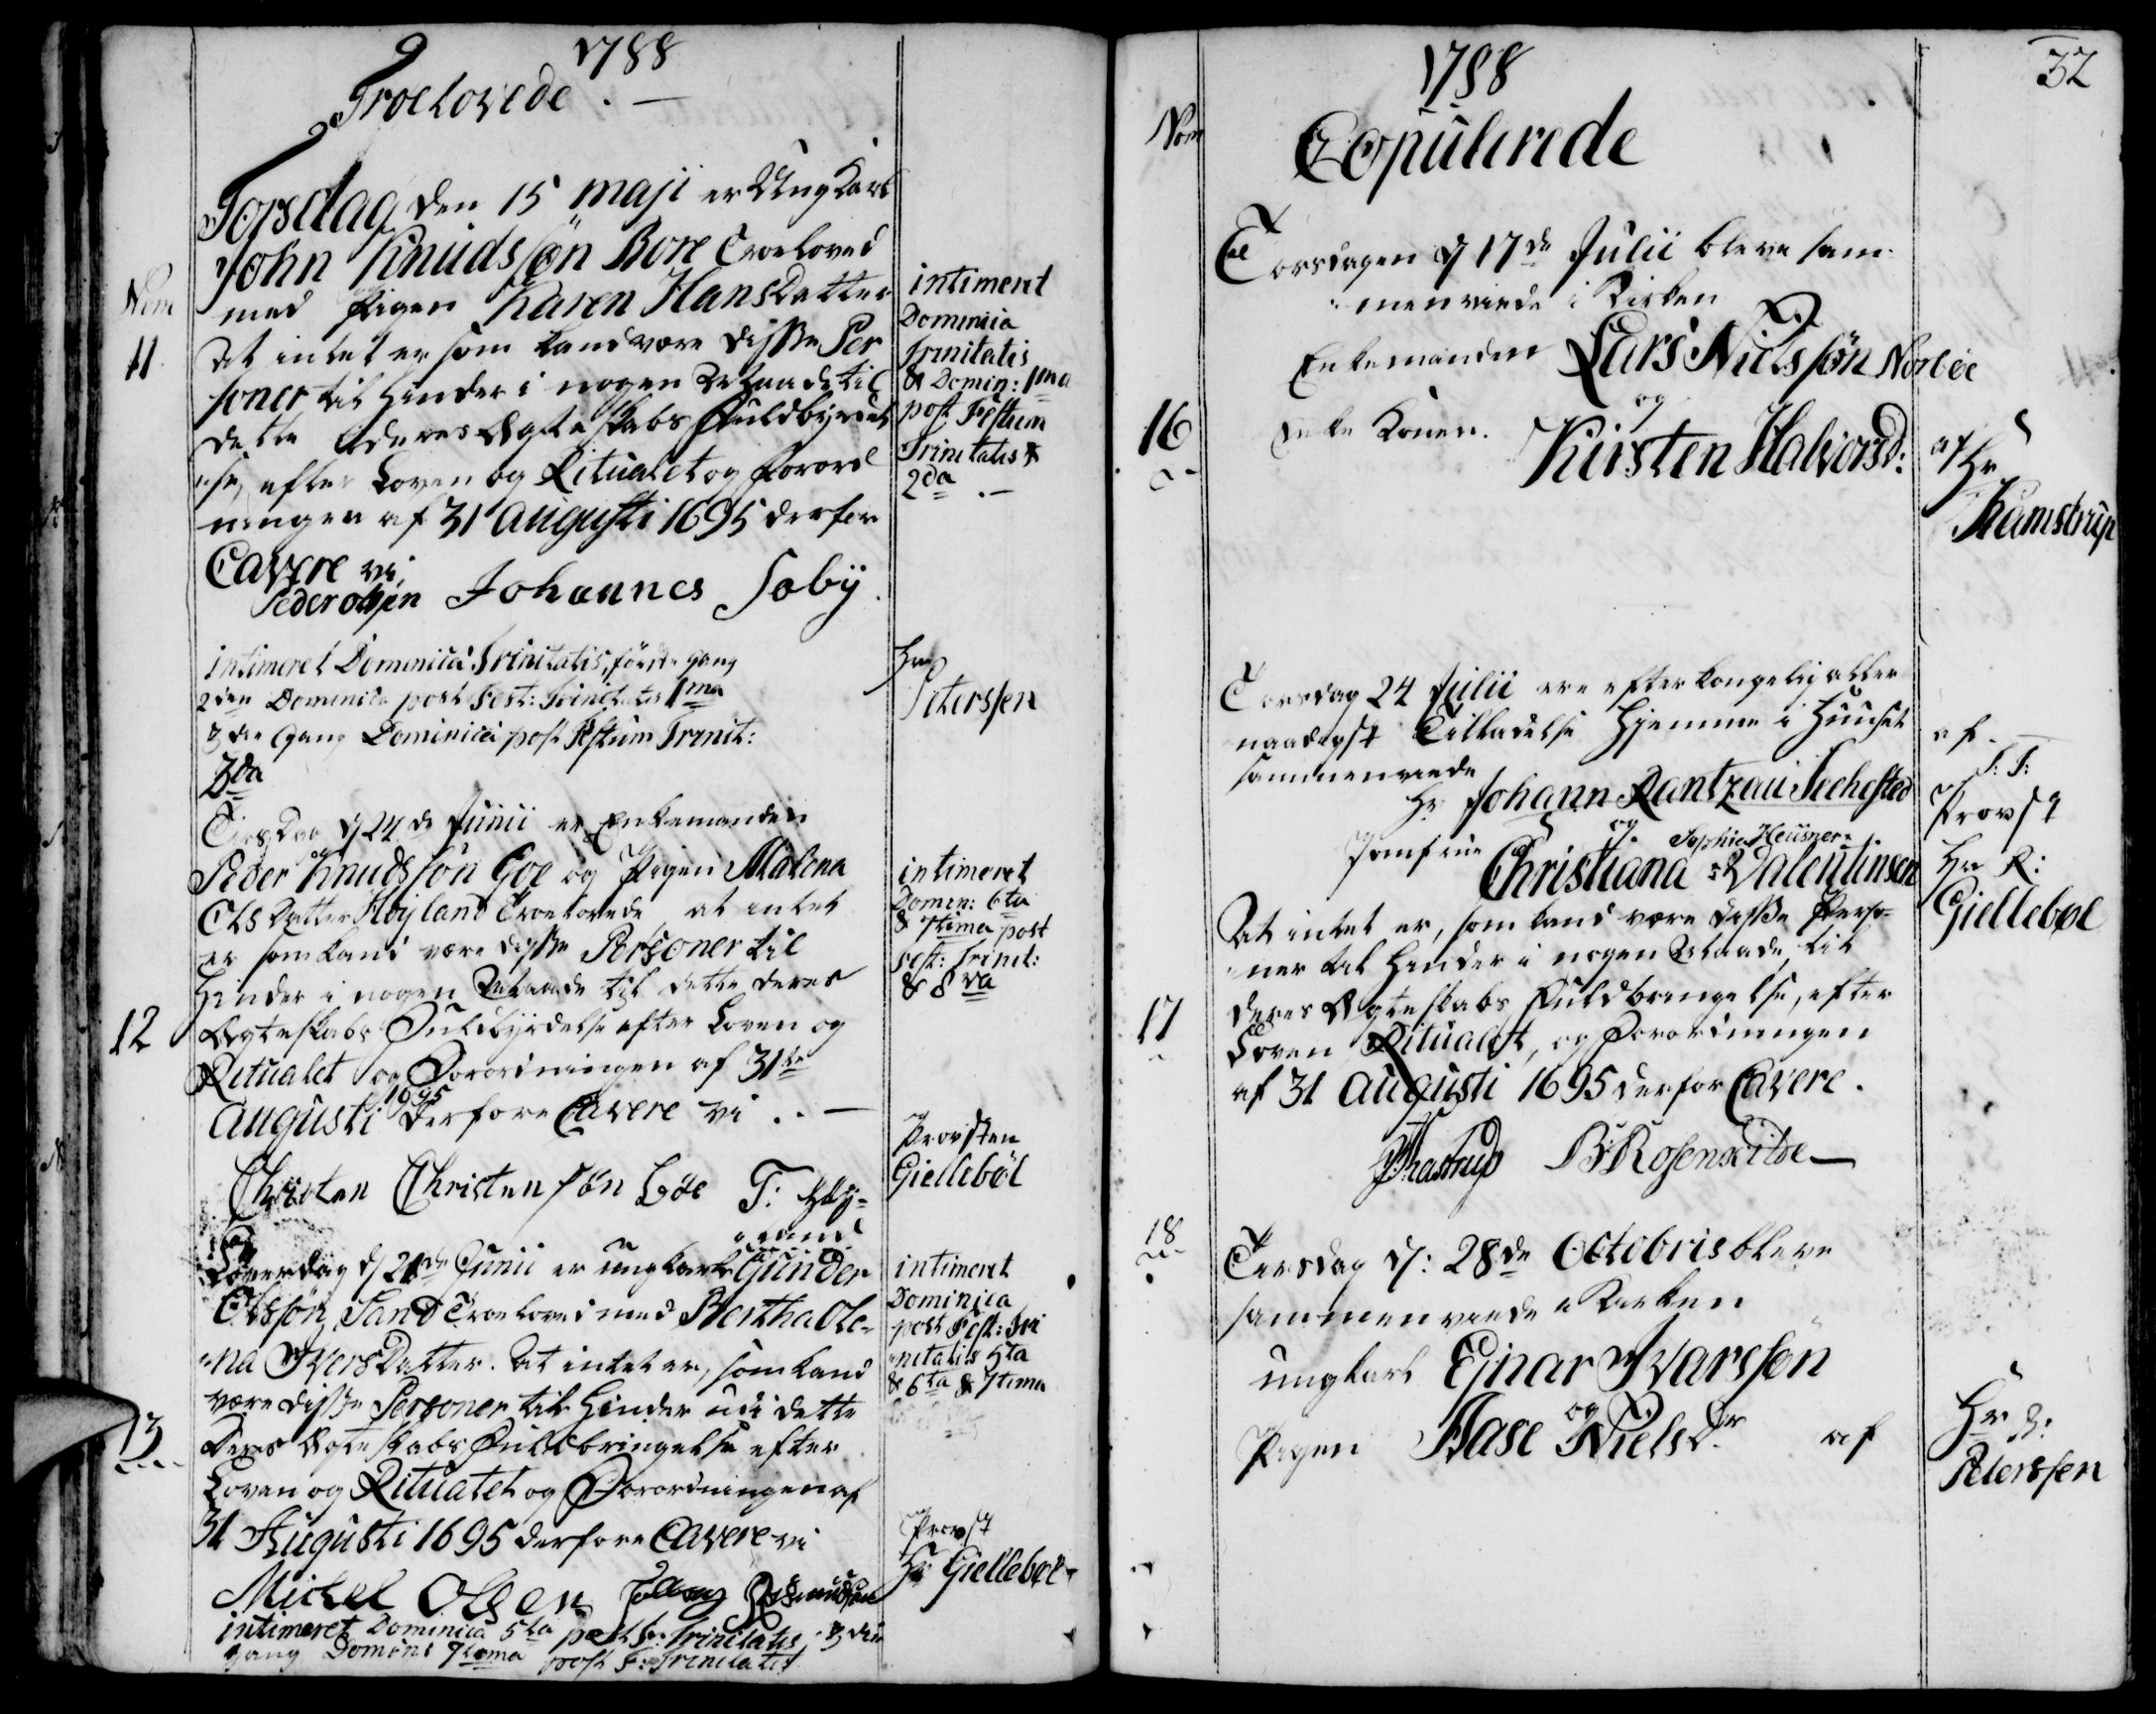 1788
Troelovede . —
Torsdag den 15 maji er Ung Karl
John Knudssøn Bore Troeloved
med Pigen Karen HansDatter
Nom
11
At intet er som kand være disse Per
soner til Hinder i nogen Maade til
dette deres Ægteskabs Fuldbyrdel
se, efter Loven og Ritualet og Forord
ningen af 31 Augusti 1695 derfor
Cavere vi,
Peder Olsen Johannes Soby.
intimeret
Dominica
Trinitatis
& Domin: 1ma
post Festum
Trinitatis &
2da . —
intimeret Dominica Trinitatis, første gang
2den Dominica post Fest: Trinitatis 1ma
3die Gang Dominica post Festum Trinit:
2da
Hr
Peterssen
Tirsdag d 24de Junii er Enkemanden
Peder Knudssøn Goe og Pigen Malena
OlsDatter Høyland Troelovede, at intet
er som kand være disse Personer til
Hinder i nogen Maade til dette deres
12
Ægteskabs Fuldbyrdelse efter Loven og
Ritualet og Forordningen af 31te
Augusti 1695 derfore Cavere vi . . —
Christen Christensøn Goe T:
intimeret
Domin: 6ta
& 7tima post
Fest: Trinit:
& 8va
Provsten
Giellebøl
Løverdag d 21de Junii er ungkarl Gunder
Olssøn Sand Troeloved med Bertha Ole-
na IversDatter. At intet er, som kand
være disse Personer til Hinder udi dette
13
Deres Ægteskabs Fuldbringelse efter
Loven og Ritualet og Forordningen af
31 Augusti 1695 derfore Cavere vi
Michel Olsen Rasmussen
intimeret Dominica 5ta post F: Trinitatis, 3die
gang Domini 7tima post F: Trinitatis
intimeret
Dominica
post Fest: Tri
nitatis 5ta
& 6ta & 7tima
Provst
Hr Giellebøl
32
1788
Nom
Copulerede
Torsdagen d 17de Julii bleve sam
menviede i Kirken
Enkemanden Lars Nielssøn Norbøe
og
16
Enke Konen. Kirsten Halvorsd:
af Hr
Kamstrup
Torsdag 24 Julii ere efter kongelig aller
naadigst Tilladelse Hjemme i Huuset
sammenviede
Hr Johann Rantzau Seehested
og
Jomfrue Christiana Sophie Heusner Valentinsen
af
S: T:
Provst
Hr R:
Giellebøl
At intet er, som kand være disse Perso
ner til Hinder i nogen Maade, til
17
deres Ægteskabs Fuldbringelse, efter
Loven Ritualet, og Forordningen
af 31 Augusti 1695 derfor Cavere.
B: Rosenkilde —
18
Tirsdag d: 28de Octobris bleve
sammenviede i Kirken
ungkarl Ejnar Ivarssøn
og
Pigen Aase NielsDr af
Hr
Peterssen